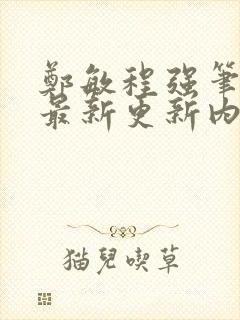 鄭敏程强筆
最新更新内
猫兒喫草